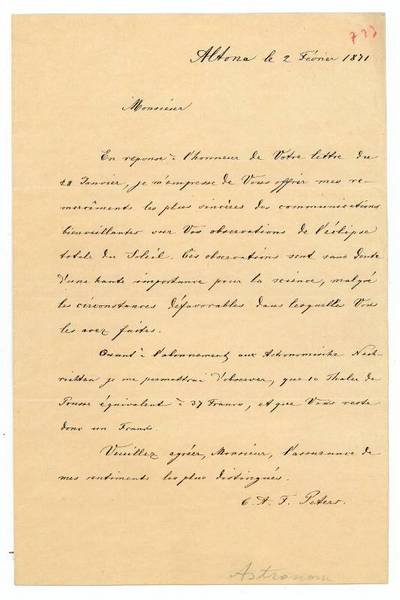 733
Altona le 2 Février 1871
Monsieur
En réponse à l'honneur de Votre lettre du
28 Janvier, je m'empresse de Vous offrir mes re-
mercîments les plus sincères des communications
bienveillantes sur Vos observations de l'éclipse
total du Soleil. Ces observations sont sans doute
d'une haute importance pour la science, malgré
les circonstances défavorables dans lesquelles Vous
les avez faites.
Quant à l'abonnement aux Astronomische Nach-
richten je me permettrai d'observer, que 10 Thaler de
Prusse équivalent à 37 Francs, et que Vous reste
donc un Franc.
Veuillez agréer, Monsieur, l'assurance de
mes sentiments les plus distingués.
C. A. F. Peters.
Astronom